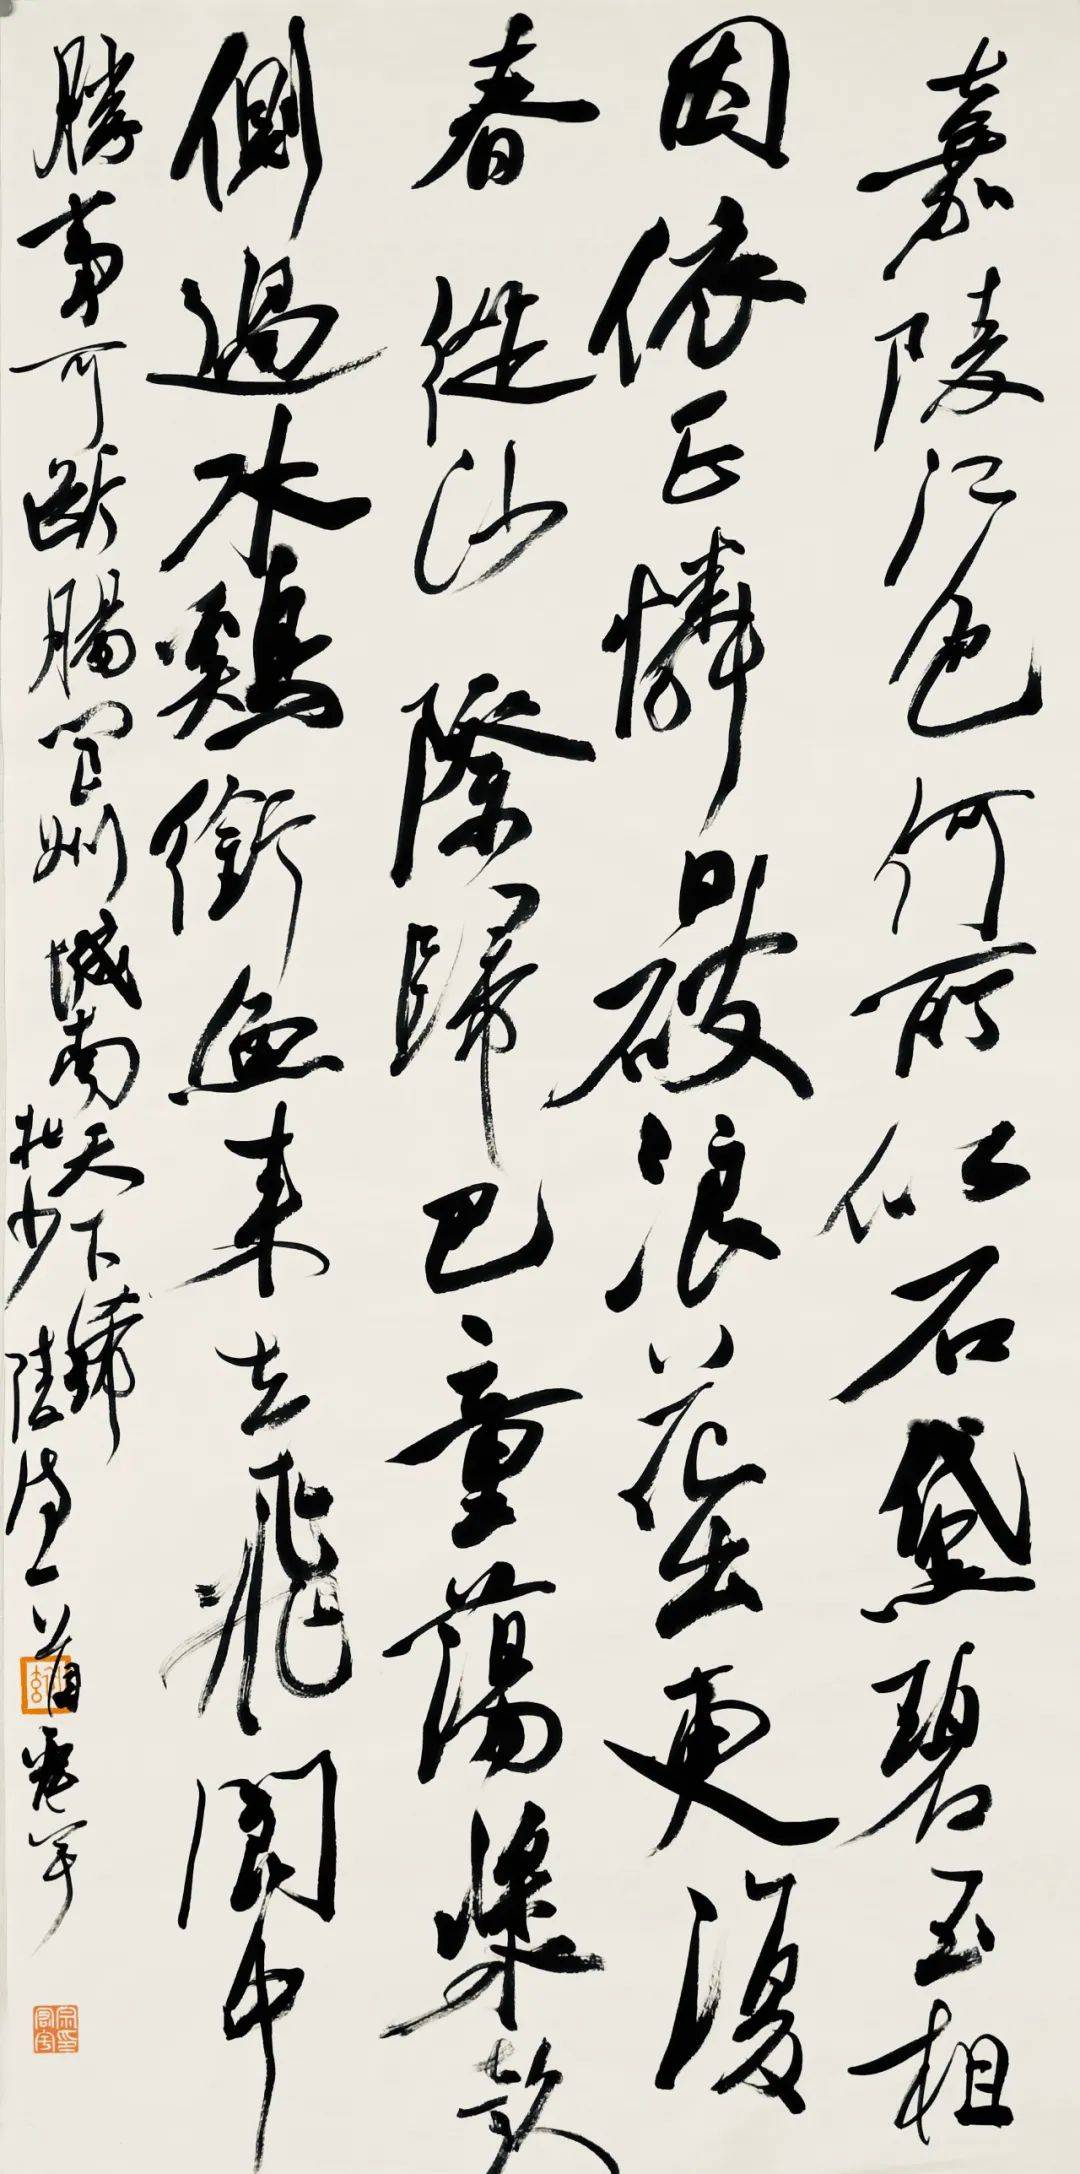 嘉陵江色何所似石黛碧玉相
因依正憐日破浪花出更復
春従沙際歸巴童蕩槳欹
側過水鷄銜魚來去飛閬中
勝事可断腸閬州城南天下稀
杜少陵诗一首